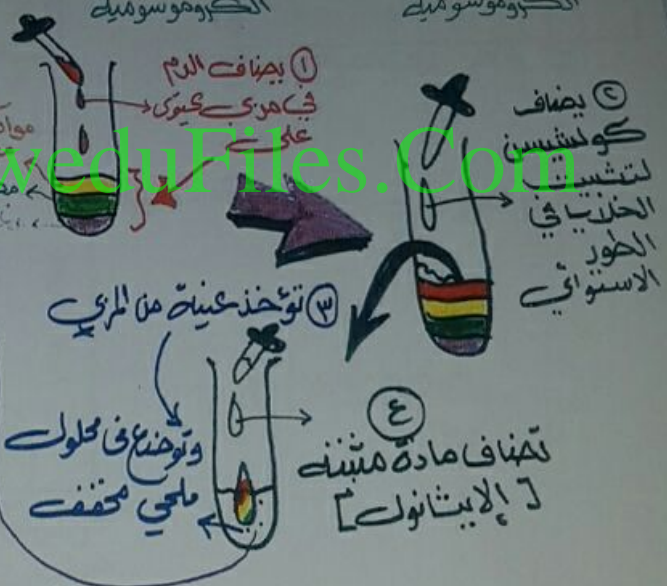 الكروموسومية
الكروموسومية
① يضاف الدم
في مربى يحتوي
على
مواد
② يضاف
كولشيسين
لتثبيت
الخلايا في
الطور
الاستوائي
weduFiles.Com
③ تؤخذ عينة من المربي
وتوضع في محلول
ملحي مخفف
④
تضاف مادة مثبته
[الإيثانول]